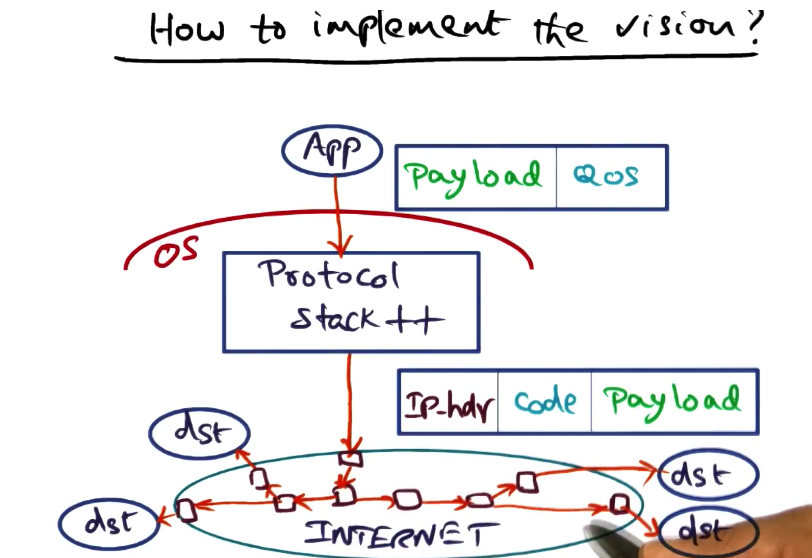 How to implement the vision?
App
Payload QoS
OS
Protocol
Stack++
IP-hdr Code Payload
dst
dst
dst
dst
INTERNET